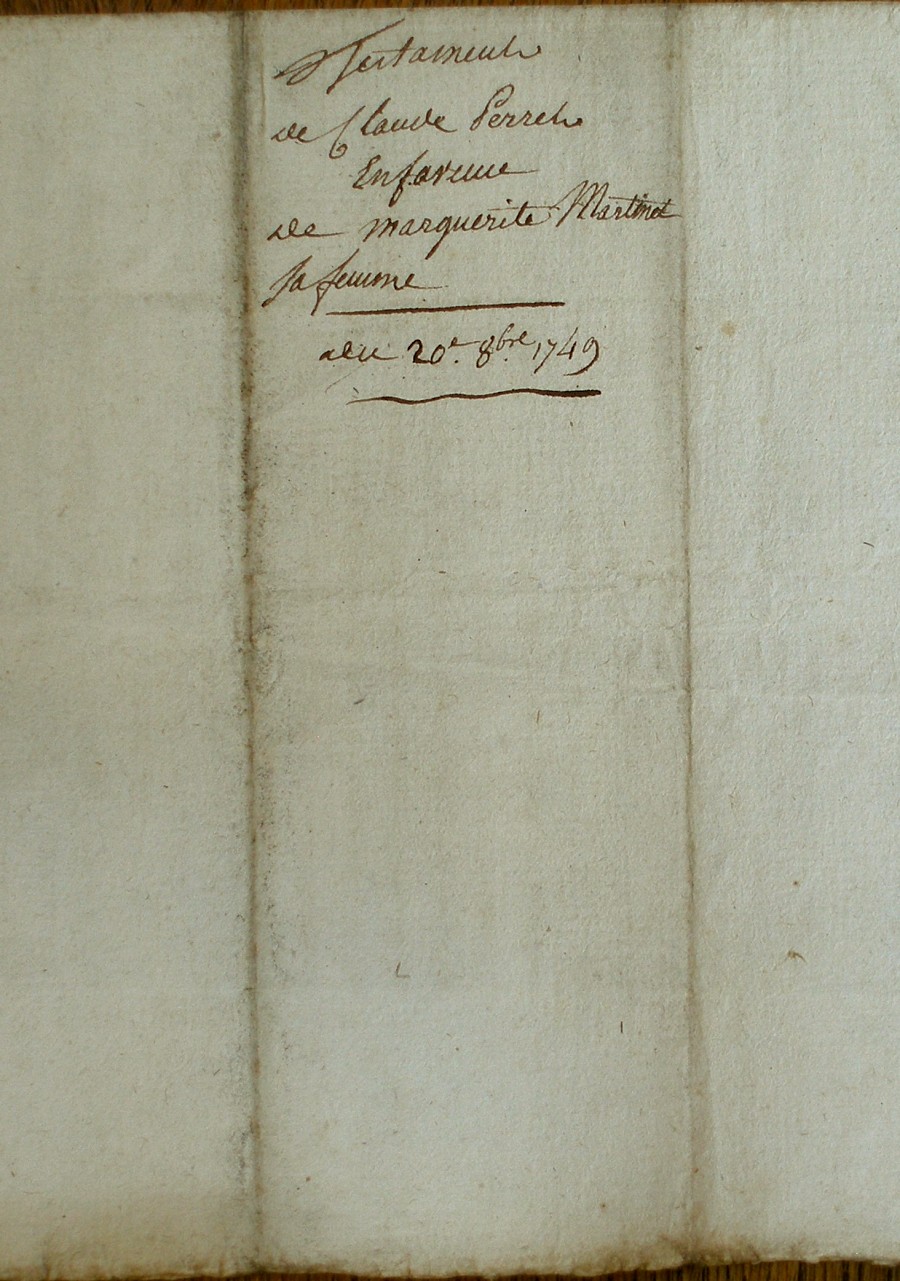 Testament
de Claude Perret
En faveur
de marguerite Martinet
sa femme
du 20e. 8bre. 1749